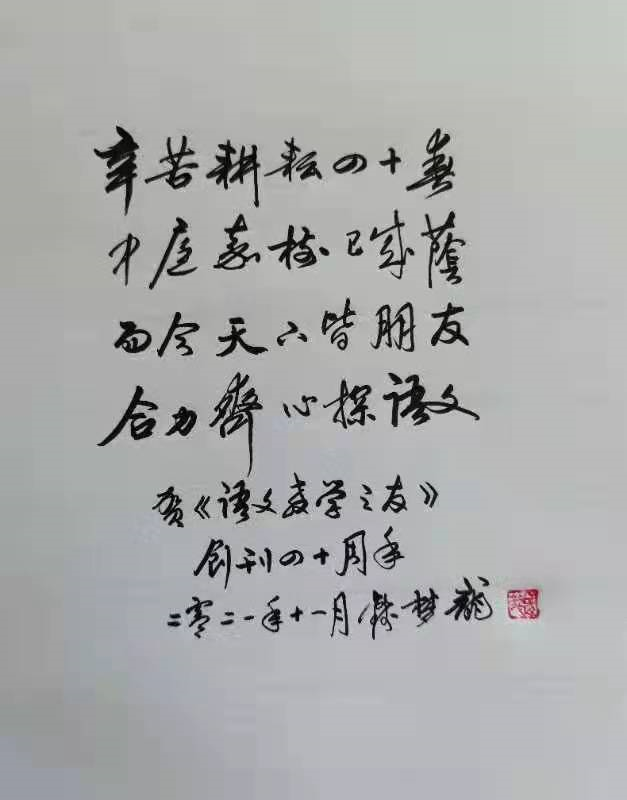 辛苦耕耘四十春
中庭嘉树已成蔭
而今天下皆朋友
合力齊心探语文
贺《语文教学之友》
创刊四十周年
二零二一年十一月钱梦龍